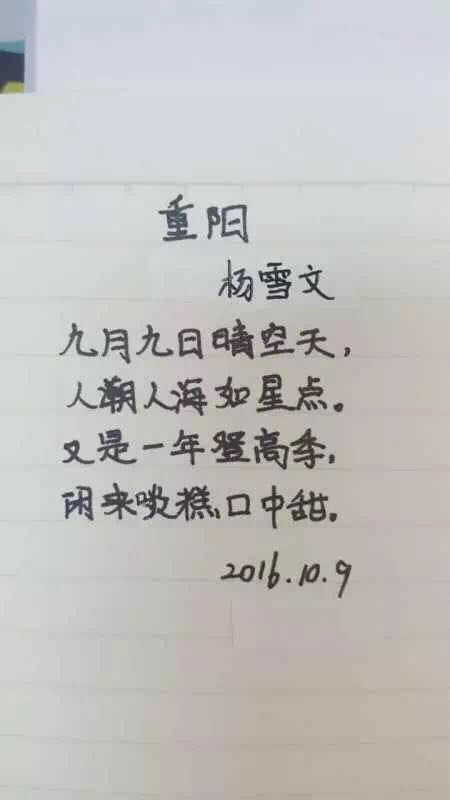 重阳
杨雪文
九月九日晴空天,
人潮人海如星点。
又是一年登高季,
闲来啖糕口中甜。
2016.10.9